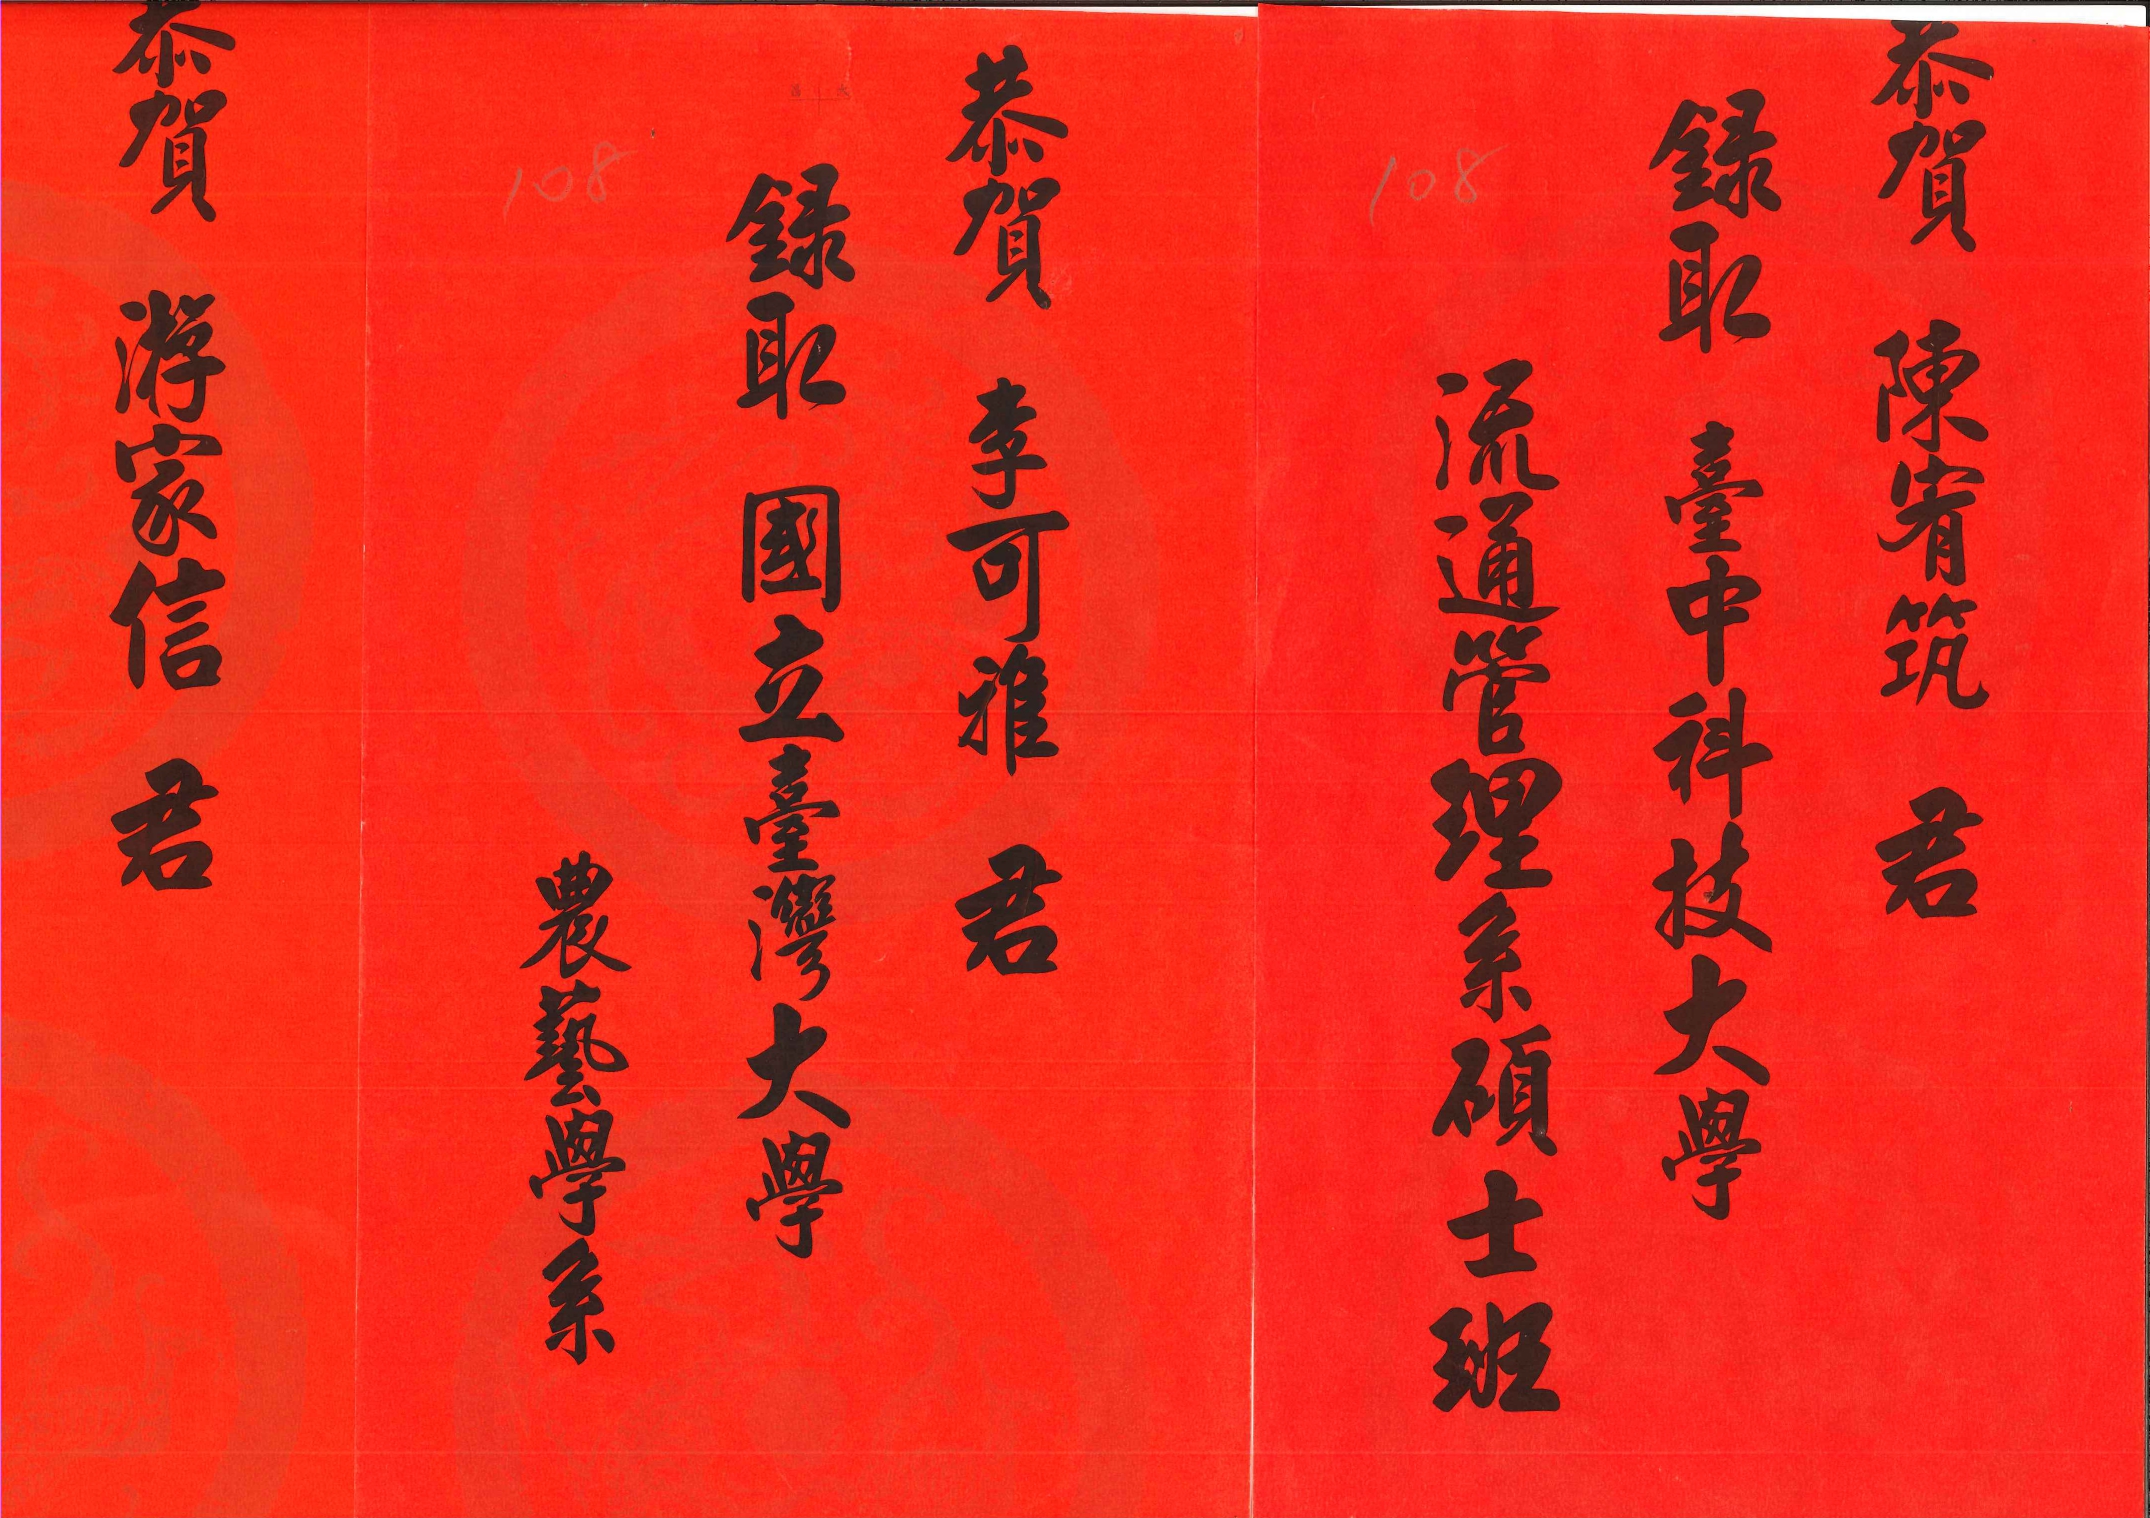 恭賀 陳宥筑 君
錄取 臺中科技大學
流通管理系碩士班
108
恭賀 李可雅 君
錄取 國立臺灣大學
農藝學系
108
恭賀 游家信 君